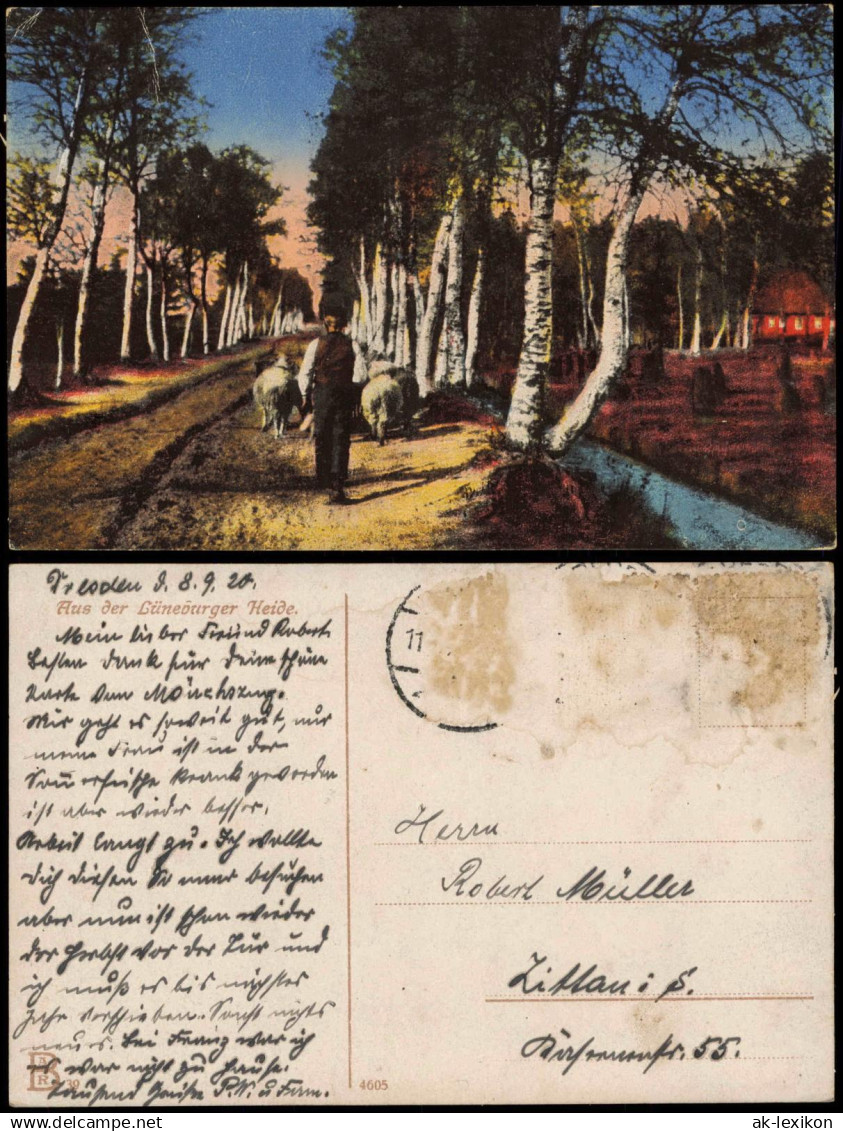 Dresden d. 8.9.20.
Aus der Lüneburger Heide.
Mein lieber Freund Robert
Besten Dank für Deine schöne
Karte vom
Mir geht es soweit gut, nur
meine Frau ist in der
Sommerfrische krank geworden
ist aber wieder besser.
Arbeit langt zu. Ich wollte
Dich diesen Sommer besuchen
aber nun ist schon wieder
der Herbst vor der Tür und
ich muß es bis nächstes
Jahr verschieben. Sonst nichts
neues. Bei Franz war ich
er war nicht zu Hause.
Tausend Grüße P.N. u Fam.
11
Herrn
Robert Müller
Zittau i S.
Kasernenstr. 55.
BNR
39
4605
ak-lexikon